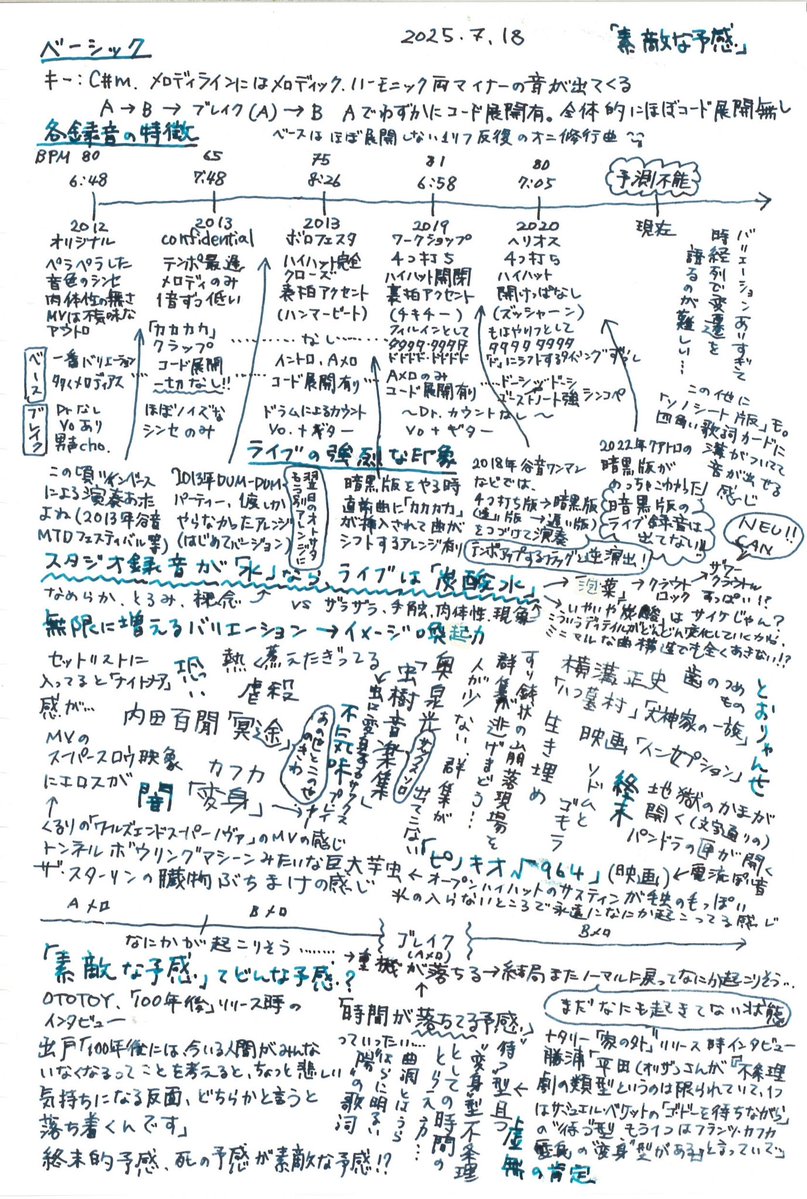 2025.7.18
「素敵な予感」
ベーシック
キー：C#m. メロディラインにはメロディック、ハーモニック両マイナーの音が出てくる
A→B→ブレイク(A)→B Aでわずかにコード展開有。全体的にほぼコード展開無し
各録音の特徴
ベースはほぼ展開しない1リフ反復のオニ修行曲
BPM 80 65 75 81 80
6:48 7:48 8:26 6:58 7:05
予測不能
2012
オリジナル
ペラペラした
音色のシンセ
肉体性の無さ
MVは不穏な
アウトロ
2013
confidential
テンポ最遅
メロディのみ
1音ずつ低い
「カカカカ」
クラップ
コード展開
一切なし!!
2013
ボロフェスタ
ハイハット完全
クローズ
裏拍アクセント
(ハンマービート)
なし
イントロ、Aメロ
コード展開有り
2019
ワークショップ
4つ打ち
ハイハット開閉
裏拍アクセント
(チキチー)
フィルインとして
タタタタ タタタタ
ドドドド ドドドド
Aメロのみ
コード展開有り
2020
ヘリオス
4つ打ち
ハイハット
開けっぱなし
(ズッシャーン)
もはやリフとして
タタタタ タタタタ
ドーシッドーシ
ゴーストノート強
シンコペ
現在
バリエーションありすぎて
時経列で変遷を
語るのが難しい…
この他に
「ソノシート版」も。
四角い歌詞カードに
溝がついてて
音が出せる
感じ
ベース
一番バリエーション
多くメロディアス
ブレイク
Drなし
Voあり
男声cho.
ほぼノイズな
シンセのみ
ドラムによるカウント
Vo.+ギター
〜Dr.カウントなし〜
Vo+ギター
ライブの強烈な印象
この頃ツインベース
による演奏あった
よね(2013年谷音
MTDフェスティバル等)
2013年DUM-DUM
パーティー、1度しか
やらなかったアレンジ
(はじめてバージョン)
暗黒版をやる時
直前曲に「カカカカ」
が挿入されて曲が
シフトするアレンジ有り
2018年谷音ワンマン
などでは、
4つ打ち版→暗黒版
(速い版→遅い版)
をつづけて演奏
テンポアップするブラッグと逆演出!
2022年クアトロの
暗黒版が
めっちゃこわかった!
暗黒版の
ライブ録音は
出てない!!
NEU!!
CAN
スタジオ録音が「水」なら、ライブは「炭酸水」
なめらか、とろみ、概念
vs ザラザラ、手触、肉体性、現象
→クラウト
ロック
サワー
クラウト
すっぱい!?
いやいや炭酸はサイケじゃん?
こういうディテイルがどんどん変化していくから
ミニマルな曲構造でも全くあきない!?
無限に増えるバリエーション→イメージの喚起力
セットリストに
入ってると「ナイトメア」
感が…
恐い
熱く煮えたぎってる
虐殺
内田百閒「冥途」
MVの
スーパースロウ映像
にエロスが
カフカ
「変身」
闇
虫樹音楽集
奥泉光
サックスソロ
出てこない
不気味
人が少ない群集が
群集が逃げまどう…
すり鉢状の山崩落現場を
生き埋め
ソドムと
ゴモラ
横溝正史
「八つ墓村」「犬神家の一族」
歯のつめもの
とおりゃんせ
映画「インセプション」
終末
地獄のかまが
開く(文字通りの)
パンドラの匣が開く
くるりの「ワールズエンドスーパーノヴァ」のMVの感じ
トンネルボウリングマシーンみたいな巨大芋虫
ザ・スターリンの臓物ぶちまけの感じ
「ピノキオ√964」(映画)
←電流ぽい音
←オープンハイハットのサスティンが
光の入らないところで永遠になにか起こってる感じ
Aメロ
Bメロ
ブレイク
(Aメロ)
Bメロ
なにかが起こりそう………
→重機が落ちる→結局またノーマルに戻ってなにか起こりそう…
まだなにも起きてない状態
「素敵な予感」てどんな予感?
OTOTOY、「100年後」リリース時の
インタビュー
出戸「100年後には、今いる人間がみんな
いなくなるってことを考えると、ちょっと悲しい
気持ちになる反面、どちらかと言うと
落ち着くんです」
終末的予感、死の予感が素敵な予感!?
「時間が落ちてる予感」
っていった……
曲調とはうら
はらに明るい
"陽"の歌詞
としての時間の
とらえ方…
"待つ"型且つ
"変身"型不条理
→虚無の肯定
ナタリー「家の外」リリース時インタビュー
勝浦「平田(オリザ)さんが「不条理
劇の類型というのは限られていて、1つ
はサミュエル・ベケットの「ゴドーを待ちながら」
の"待つ"型 もう1つはフランツ・カフカ
の"変身"型がある」と言っていて」